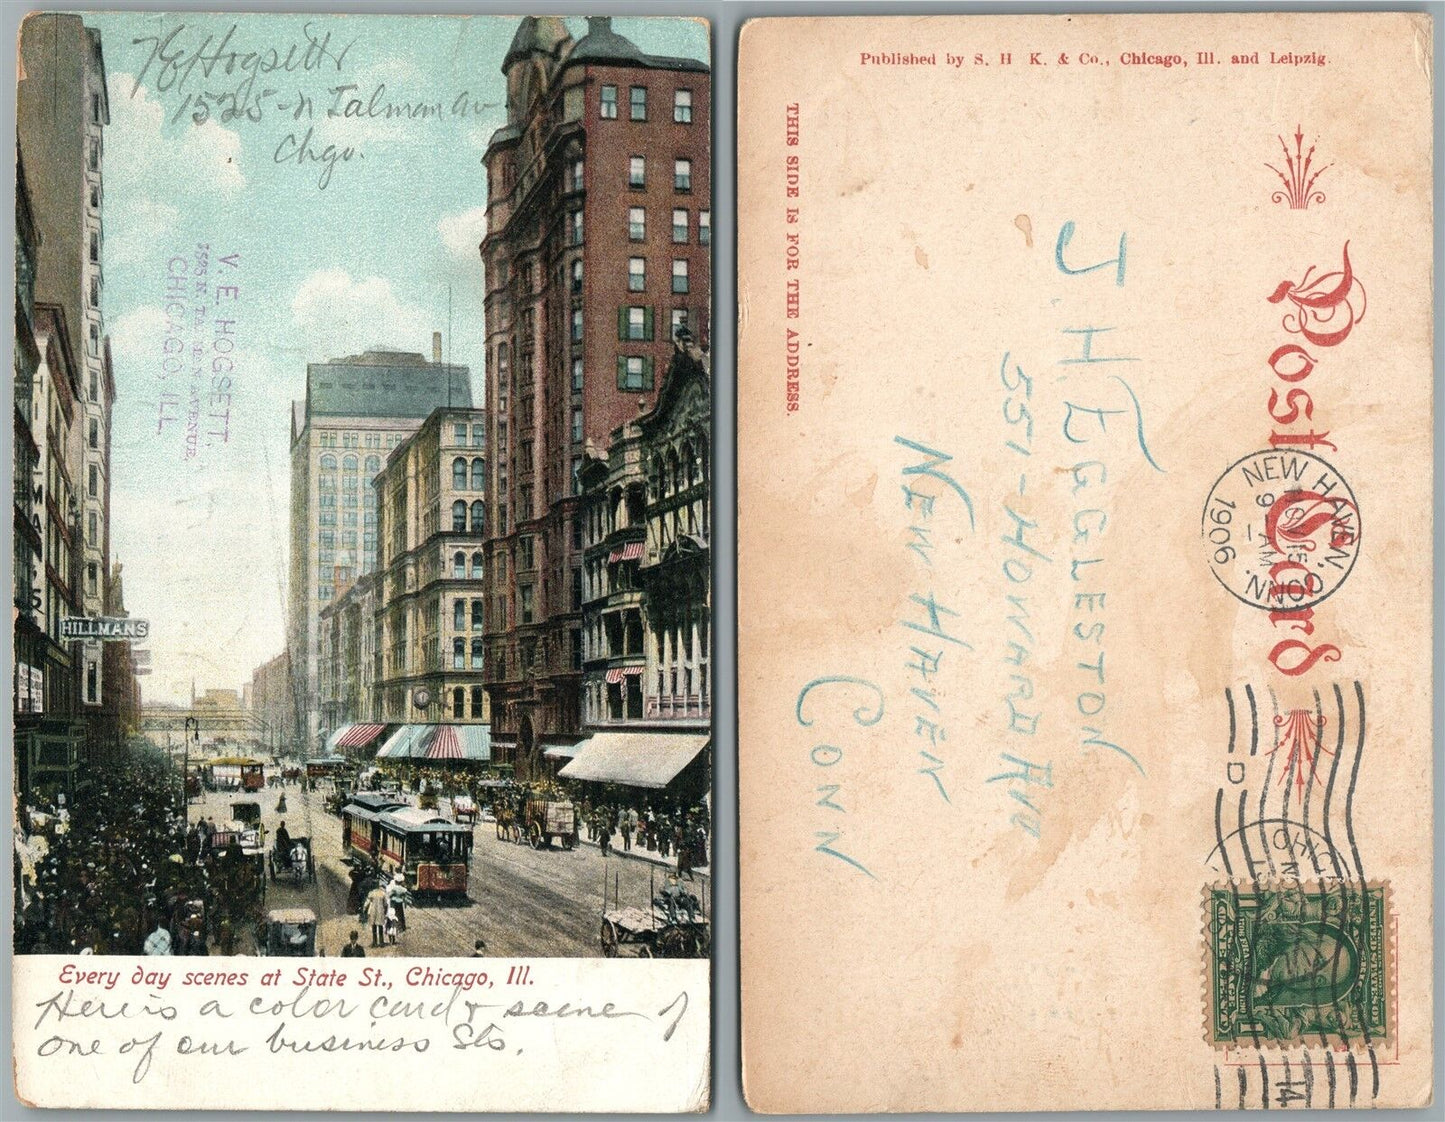 VE Hogsett
1525 - N Talman Av
Chgo.
V. E. HOGSETT,
1525 N. TALMAN AVENUE,
CHICAGO, ILL.
HILLMANS
Every day scenes at State St., Chicago, Ill.
Here is a color card & scene of
one of our business Sts.
Published by S. H K. & Co., Chicago, Ill. and Leipzig.
THIS SIDE IS FOR THE ADDRESS.
Post Card
J. H. EGGLESTON
551 - HOWARD AVE
NEW HAVEN
CONN
NEW HAVEN, CONN.
15
9 - AM
1906
D
CHICAGO
14